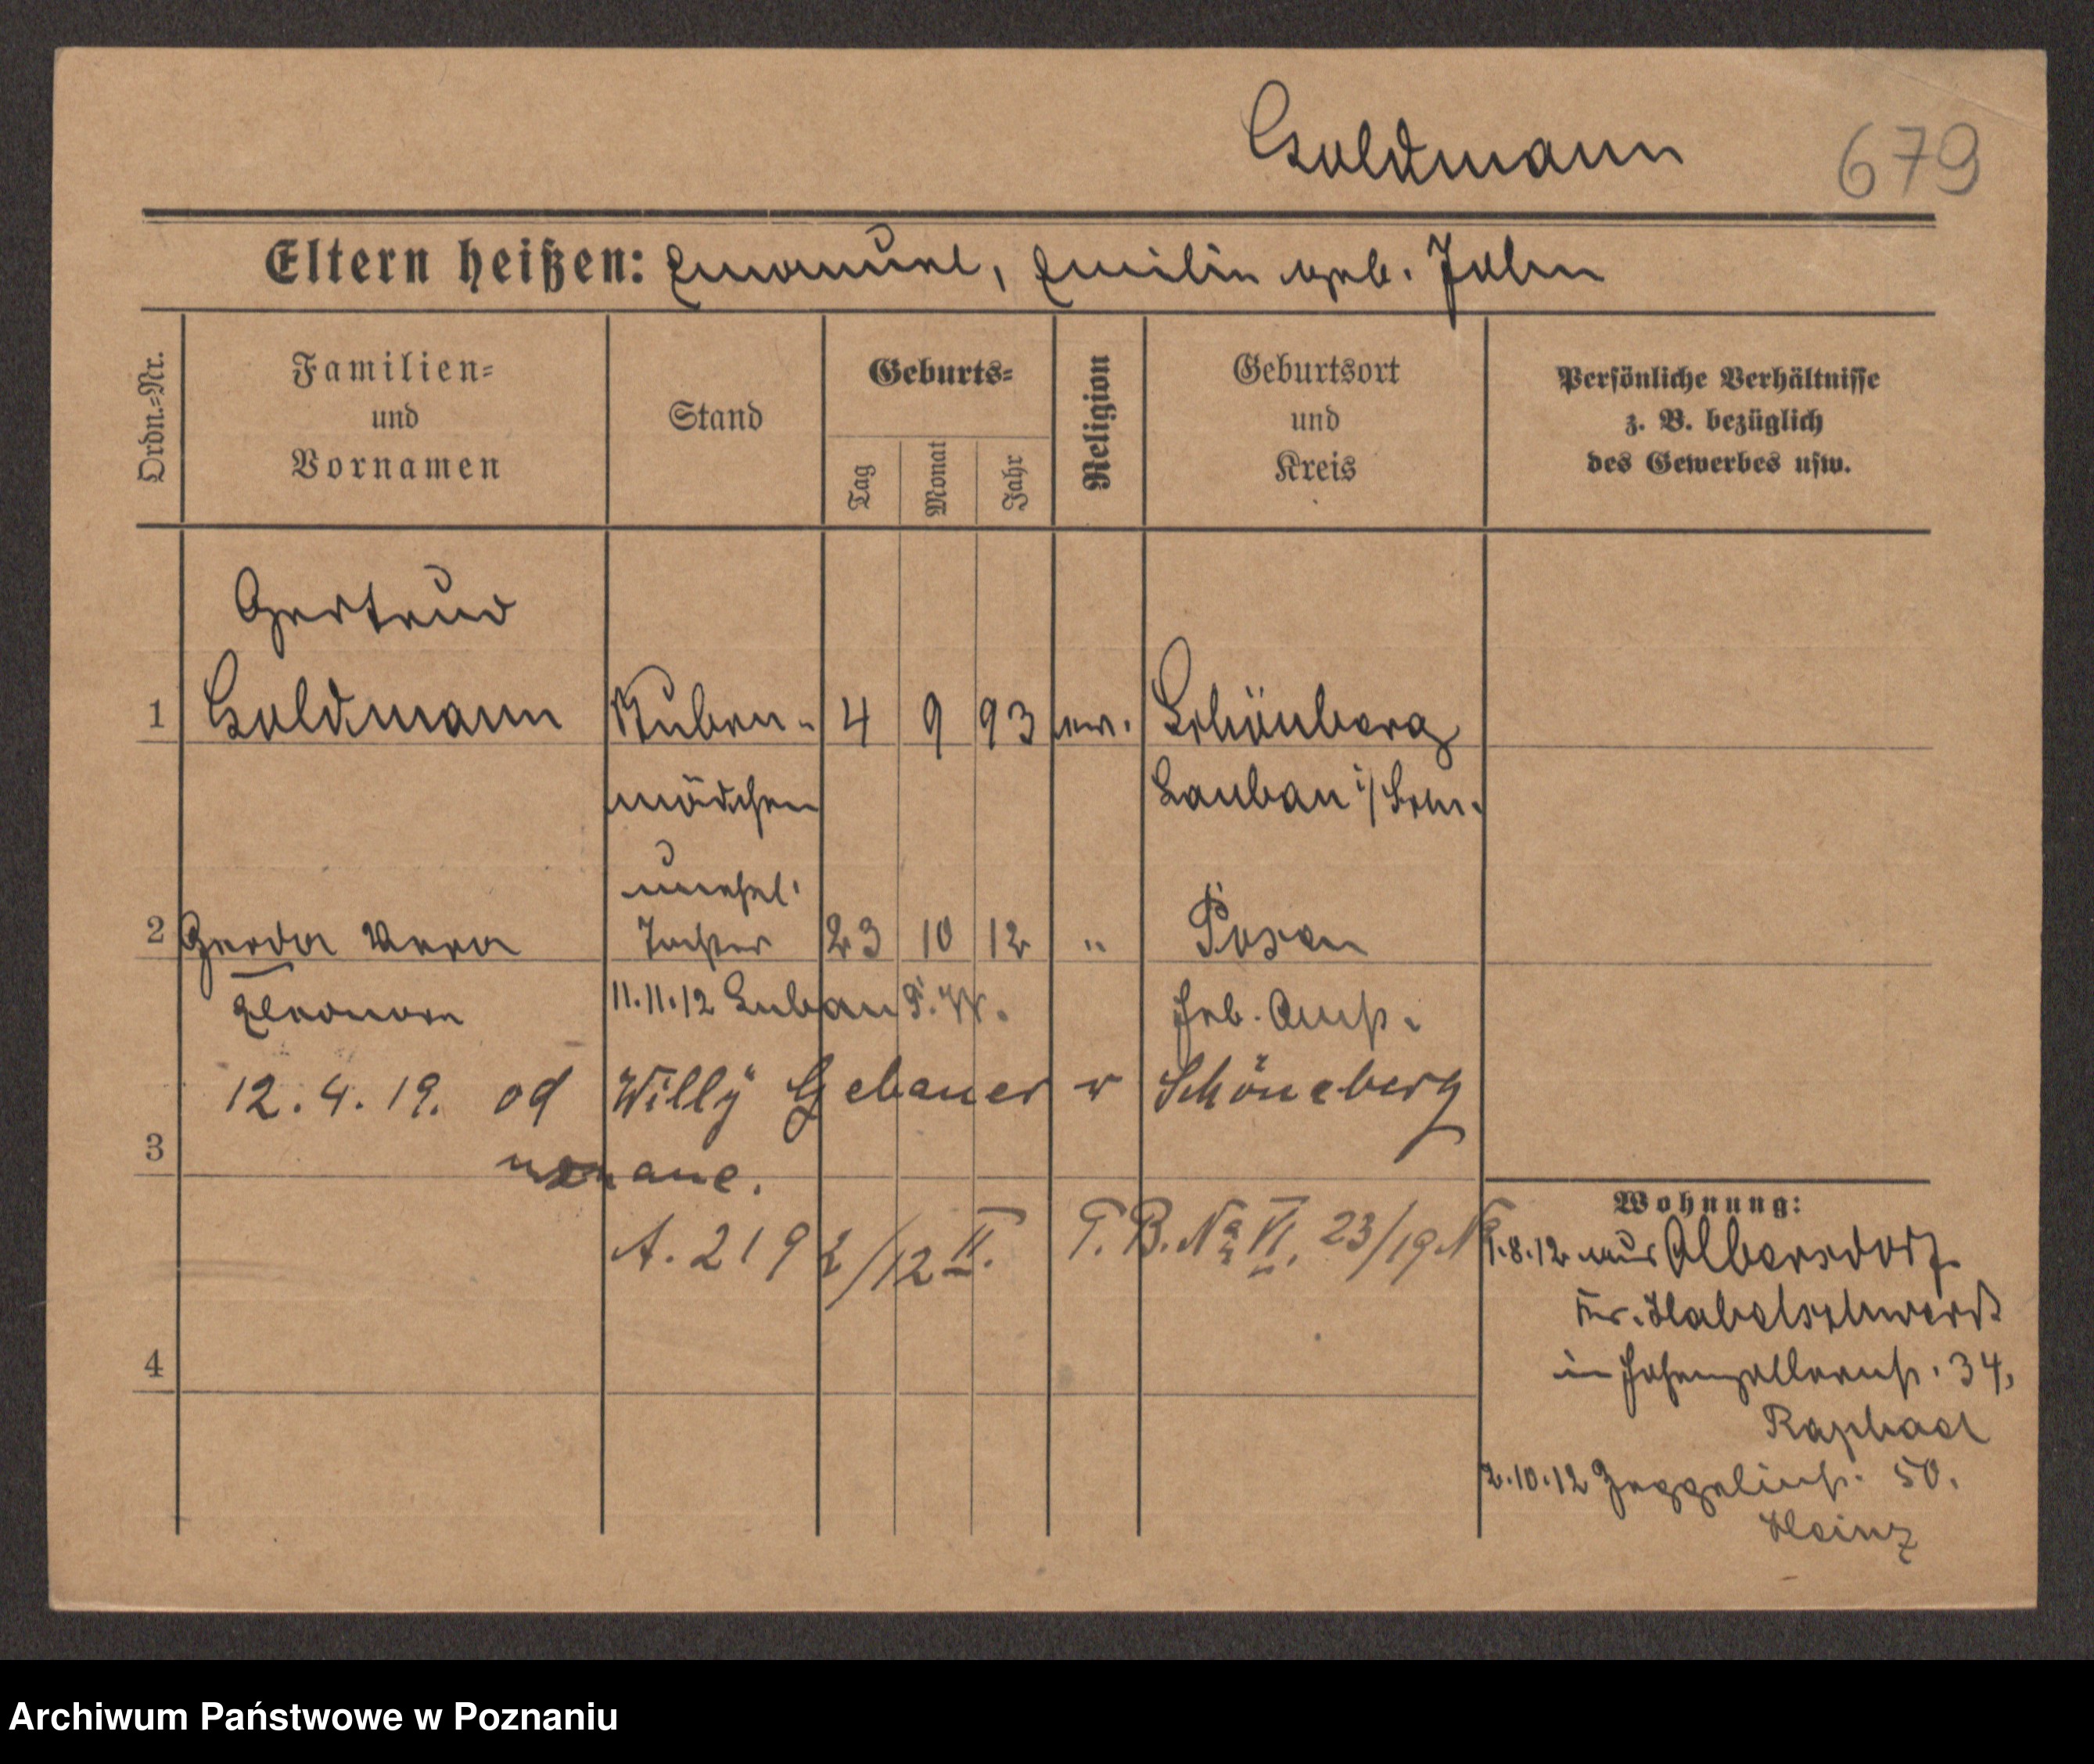 Goldmann 679
Eltern heißen: Emanuel, Emilie geb. John
Ordn.=Nr.
Familien=
und
Vornamen
Stand
Geburts=
Tag
Monat
Jahr
Religion
Geburtsort
und
Kreis
Persönliche Verhältnisse
z. B. bezüglich
des Gewerbes usw.
Gertrud
1 Goldmann Stuben- 4 9 93 ev. Schönberg
mädchen Lauban i/Schl.
unehel.
2 Gerda Vera Tochter 23 10 12 " Posen
Eleonore 11.11.12 Luban P. W. Heb. Anst.
12.4.19. od Willy Gebauer w Schöneberg
3
4
A. 2192/12 II. T.B. No VI. 23/19 N
Wohnung:
1.8.12 aus Albersdorf
Kr. Habelschwerdt
in Hohenzollernstr. 34,
Raphael
2.10.12 Zeppelinstr. 50.
Heinz
Archiwum Państwowe w Poznaniu